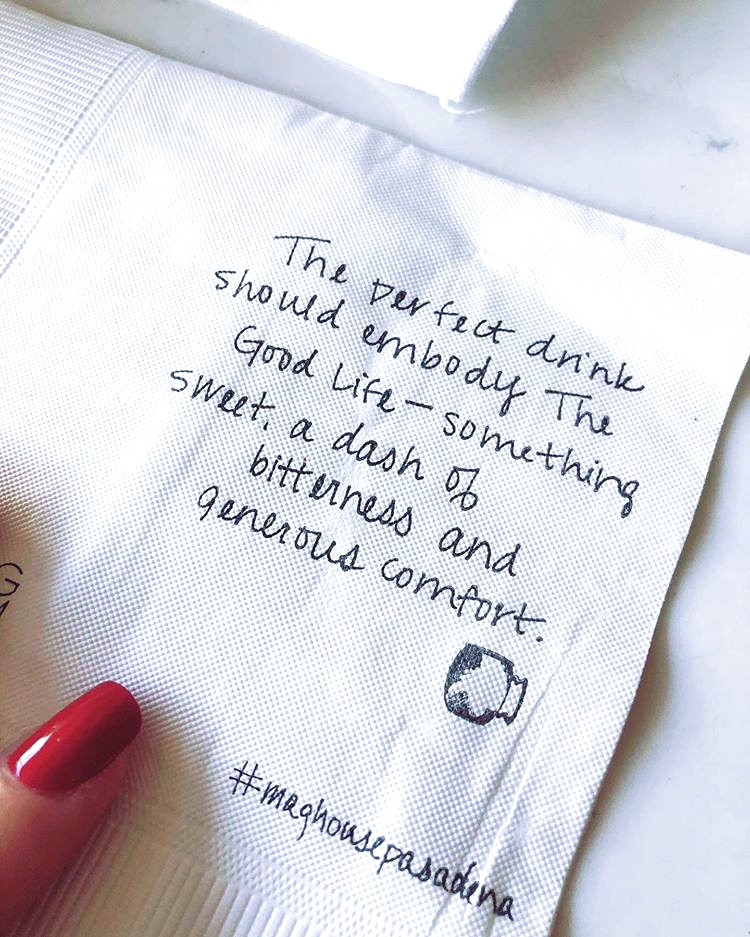 The perfect drink
should embody The
Good Life — something
sweet, a dash of
bitterness and
generous comfort.
#maghousepasadena
G